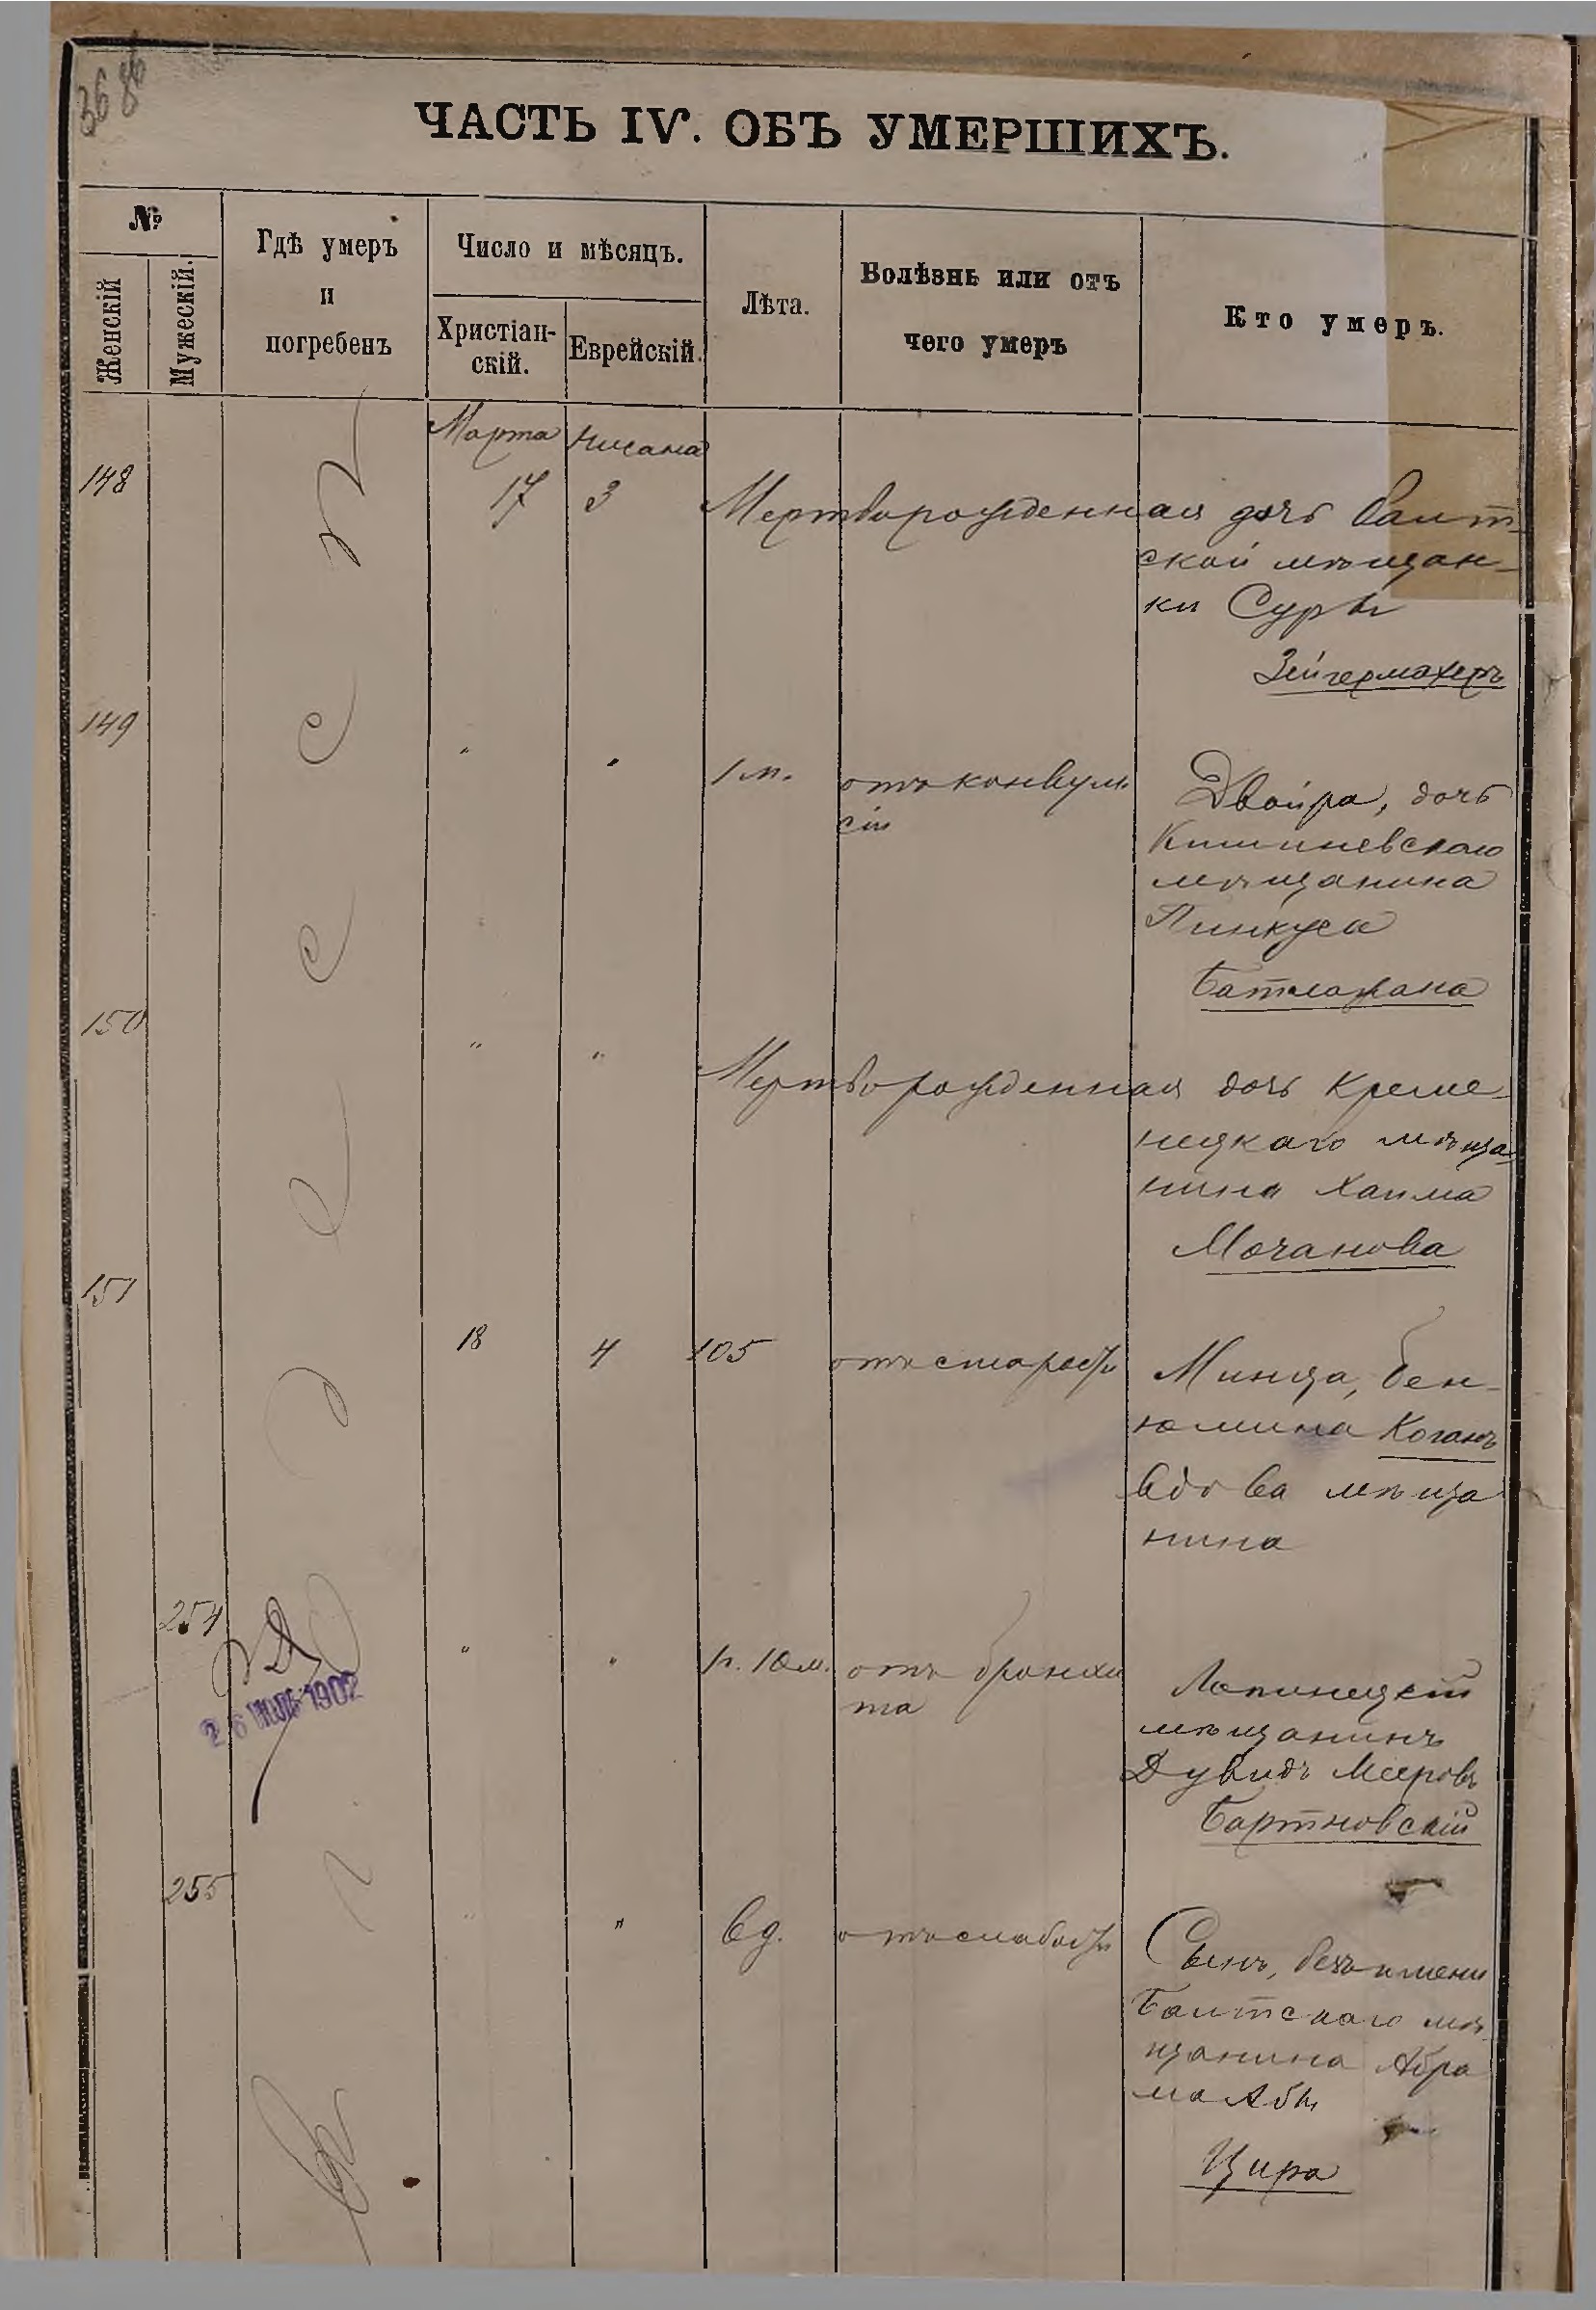 368
ЧАСТЬ IV. ОБЪ УМЕРШИХЪ.
№
Женскій
Мужескій.
Гдѣ умеръ
и
погребенъ
Число и мѣсяцъ.
Христіан-
скій.
Еврейскій.
Лѣта.
Болѣзнь или отъ
чего умеръ
Кто умеръ.
въ Одессѣ
Марта Нисана
148 17 3 Мертворожденная дочь Балт-
ской мѣщан-
ки Суры
Зейгермахеръ
149 " " 1 м. отъ конвуль
сіи
Двойра, дочь
Кишиневскаго
мѣщанина
Пинкуса
150 " " Мертворожденная дочь Креме-
нецкаго мѣща-
нина Хаима
Мочанова
151 18 4 105 отъ старости Минца, Бен-
юмина Коганъ
вдова мѣща
нина
254 " " 1 г. 10 м. отъ бронхи
та
мѣщанинъ
Дувидъ Мееровъ
Бартновскій
26 1902
255 " " 6 д. отъ слабости Сынъ, безъ имени
Балтскаго мѣ-
щанина Абра
ма Абы
Цира